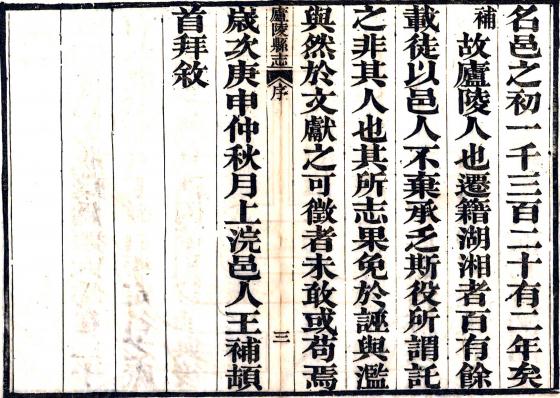 名邑之初一千三百二十有二年矣
補故廬陵人也遷籍湖湘者百有餘
載徒以邑人不棄承乏斯役所謂託
之非其人也其所志果免於誣與濫
與然於文獻之可徵者未敢或苟焉
廬陵縣志 序 三
歲次庚申仲秋月上浣邑人王補頓
首拜敘